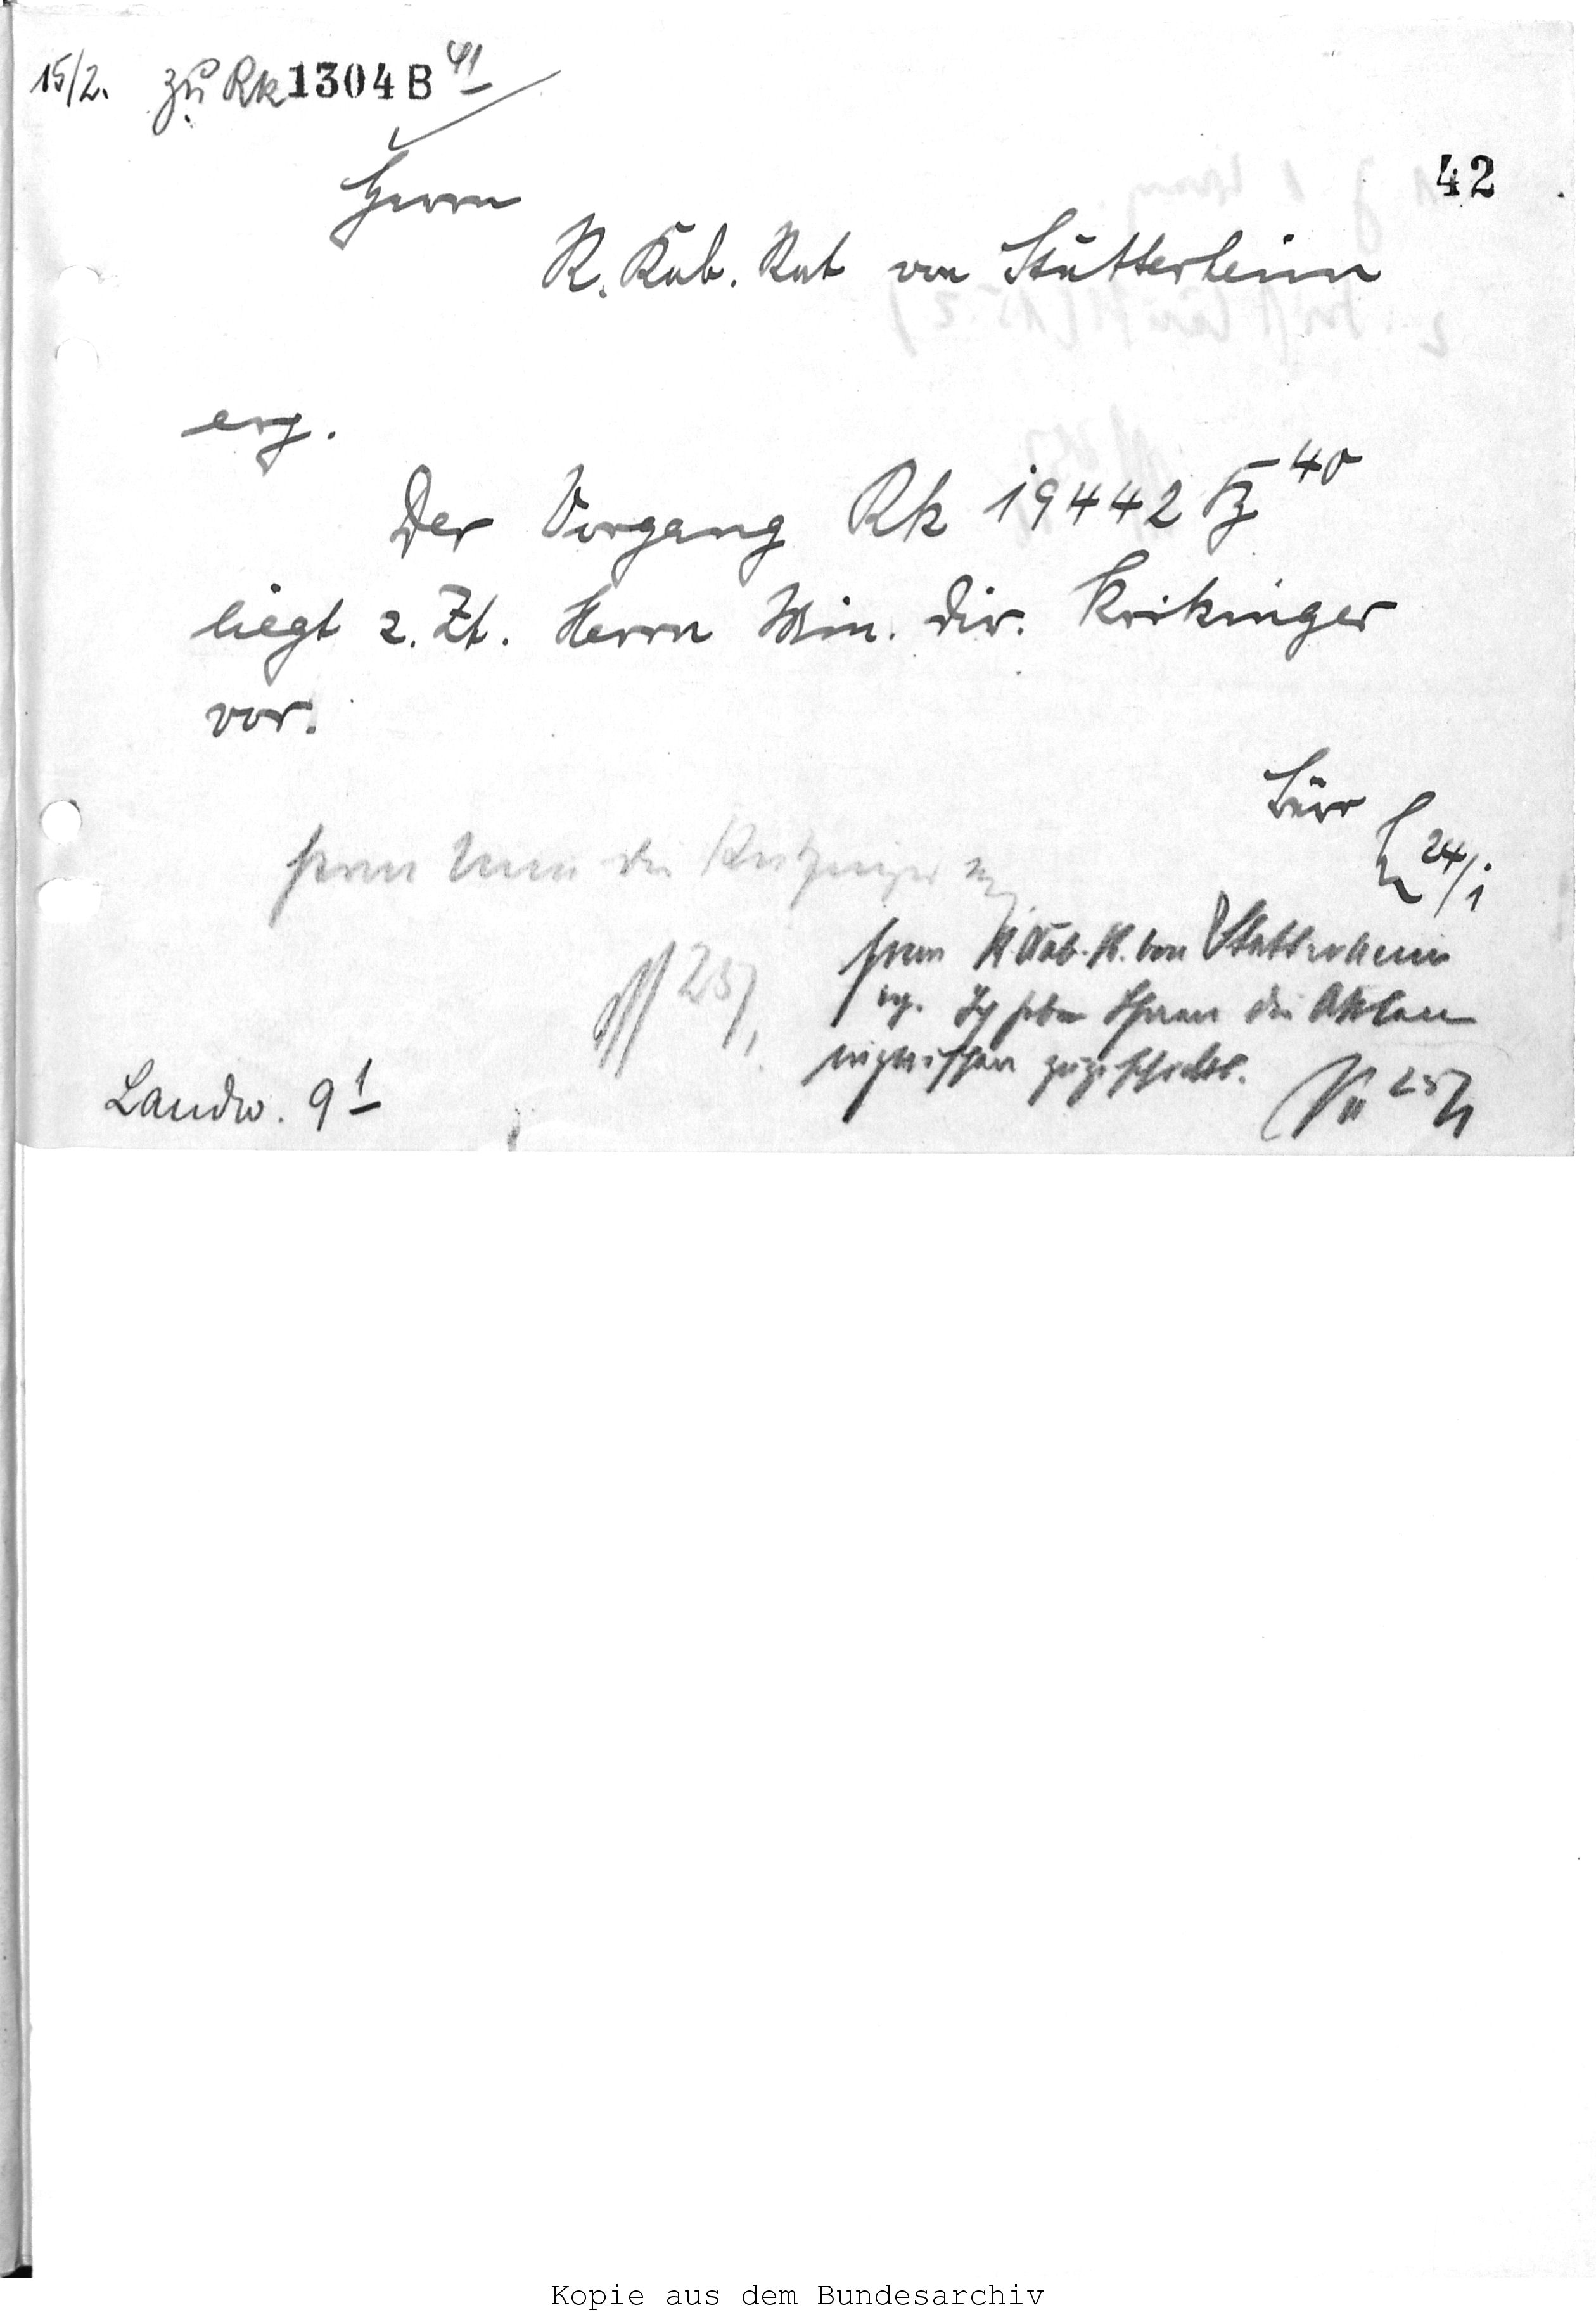 15/2. zu Rk 1304 B 41
42
Herrn
R. Kab. Rat von Stutterheim
erg.
Der Vorgang Rk 19442 40
liegt z. Zt. Herrn Min. Dir. Kritzinger
vor.
24/1
Herrn Min Dir Kritzinger erg.
25/1
Herrn R. Kab. R. von Stutterheim
erg. Ich habe Ihnen die Akten
inzwischen zugeschickt.
25/1
Landw. 9 1
Kopie aus dem Bundesarchiv